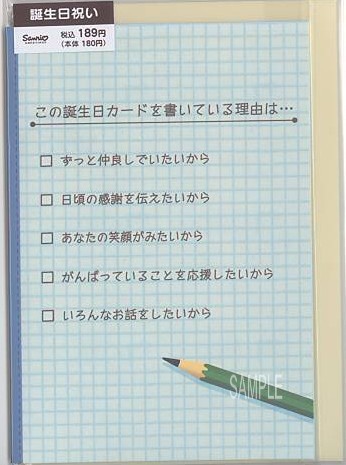 誕生日祝い
Sanrio
税込 189円
(本体 180円)
この誕生日カードを書いている理由は…
ずっと仲良しでいたいから
日頃の感謝を伝えたいから
あなたの笑顔がみたいから
がんばっていることを応援したいから
いろんなお話をしたいから
SAMPLE